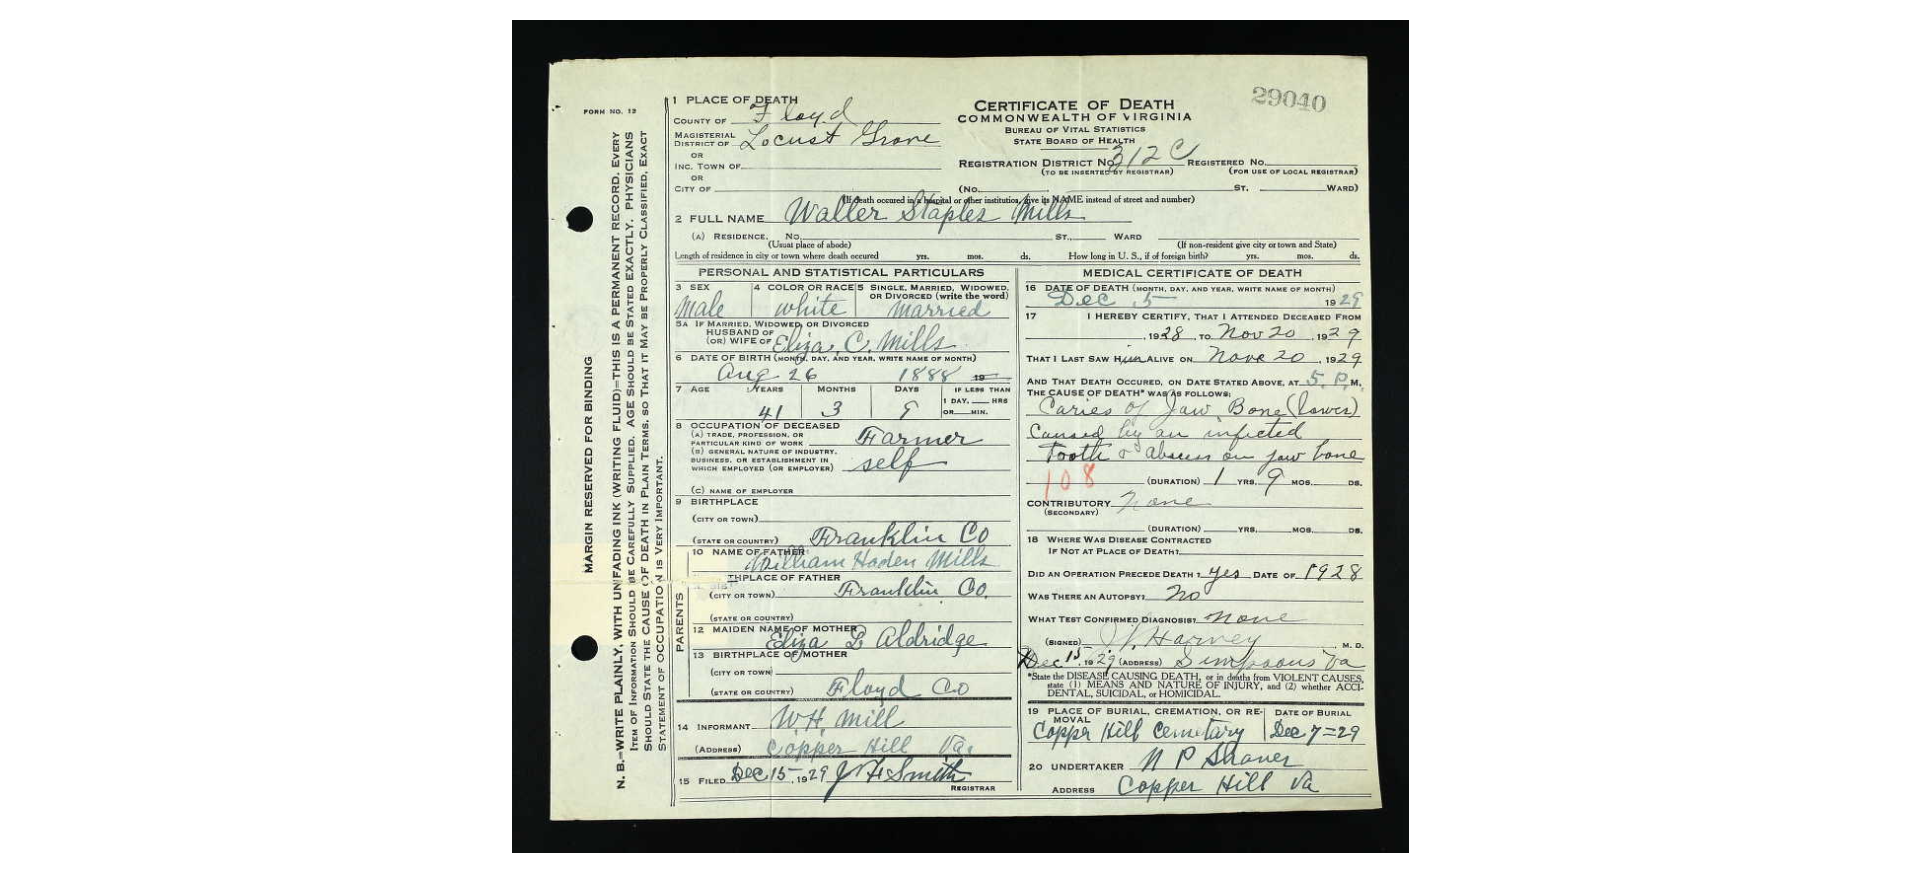 FORM NO. 12
MARGIN RESERVED FOR BINDING
N. B.—WRITE PLAINLY, WITH UNFADING INK (WRITING FLUID)—THIS IS A PERMANENT RECORD. EVERY
ITEM OF INFORMATION SHOULD BE CAREFULLY SUPPLIED. AGE SHOULD BE STATED EXACTLY. PHYSICIANS
SHOULD STATE THE CAUSE OF DEATH IN PLAIN TERMS, SO THAT IT MAY BE PROPERLY CLASSIFIED. EXACT
STATEMENT OF OCCUPATION IS VERY IMPORTANT.
29040
CERTIFICATE OF DEATH
COMMONWEALTH OF VIRGINIA
BUREAU OF VITAL STATISTICS
STATE BOARD OF HEALTH
1 PLACE OF DEATH
COUNTY OF Floyd
MAGISTERIAL DISTRICT OF Locust Grove
OR
INC. TOWN OF
OR
CITY OF
REGISTRATION DISTRICT NO. 312 C REGISTERED NO.
(TO BE INSERTED BY REGISTRAR) (FOR USE OF LOCAL REGISTRAR)
(NO. ST. WARD)
(If death occured in a hospital or other institution, give its NAME instead of street and number)
2 FULL NAME Walter Staples Mills
(A) RESIDENCE. NO. ST. WARD
(Usual place of abode) (If non-resident give city or town and State)
Length of residence in city or town where death occured yrs. mos. ds. How long in U. S., if of foreign birth? yrs. mos. ds.
PERSONAL AND STATISTICAL PARTICULARS
3 SEX
male
4 COLOR OR RACE
white
5 SINGLE, MARRIED, WIDOWED, OR DIVORCED (write the word)
married
5A IF MARRIED, WIDOWED, OR DIVORCED
HUSBAND OF
(OR) WIFE OF Eliza. C. Mills
6 DATE OF BIRTH (MONTH, DAY, AND YEAR, WRITE NAME OF MONTH)
Aug 26 1888 19
7 AGE YEARS MONTHS DAYS IF LESS THAN
1 DAY, HRS
OR MIN.
41 3 9
8 OCCUPATION OF DECEASED
(A) TRADE, PROFESSION, OR
PARTICULAR KIND OF WORK Farmer
(B) GENERAL NATURE OF INDUSTRY,
BUSINESS, OR ESTABLISHMENT IN
WHICH EMPLOYED (OR EMPLOYER) self
(C) NAME OF EMPLOYER
9 BIRTHPLACE
(CITY OR TOWN)
(STATE OR COUNTRY) Franklin Co
PARENTS
10 NAME OF FATHER
William Hoden Mills
THPLACE OF FATHER
(CITY OR TOWN) Franklin Co.
(STATE OR COUNTRY)
12 MAIDEN NAME OF MOTHER
Eliza Aldridge
13 BIRTHPLACE OF MOTHER
(CITY OR TOWN)
(STATE OR COUNTRY) Floyd Co
14 INFORMANT W.H. Mill
(ADDRESS) Copper Hill Va.
15 FILED Dec 15, 1929 Smith
REGISTRAR
MEDICAL CERTIFICATE OF DEATH
16 DATE OF DEATH (MONTH, DAY, AND YEAR, WRITE NAME OF MONTH)
Dec. 5 1929
17 I HEREBY CERTIFY, THAT I ATTENDED DECEASED FROM
, 1928, TO Nov 20, 1929
THAT I LAST SAW Him ALIVE ON Nove 20, 1929
AND THAT DEATH OCCURED, ON DATE STATED ABOVE, AT 5. P. M.
THE CAUSE OF DEATH* WAS AS FOLLOWS:
Caries of Jaw Bone (lower)
Caused by an infected
tooth & abscess on jaw bone
108 (DURATION) 1 YRS. 9 MOS. DS.
CONTRIBUTORY None
(SECONDARY)
(DURATION) YRS. MOS. DS.
18 WHERE WAS DISEASE CONTRACTED
IF NOT AT PLACE OF DEATH?
DID AN OPERATION PRECEDE DEATH? yes DATE OF 1928
WAS THERE AN AUTOPSY? No
WHAT TEST CONFIRMED DIAGNOSIS? none
(SIGNED) Harvey, M. D.
Dec 15, 1929 (ADDRESS) Simpsons Va
*State the DISEASE CAUSING DEATH, or in deaths from VIOLENT CAUSES,
state (1) MEANS AND NATURE OF INJURY, and (2) whether ACCI-
DENTAL, SUICIDAL, or HOMICIDAL.
19 PLACE OF BURIAL, CREMATION, OR RE-
MOVAL
Copper Hill Cemetary
DATE OF BURIAL
Dec 7=29
20 UNDERTAKER N P Shaver
ADDRESS Copper Hill Va